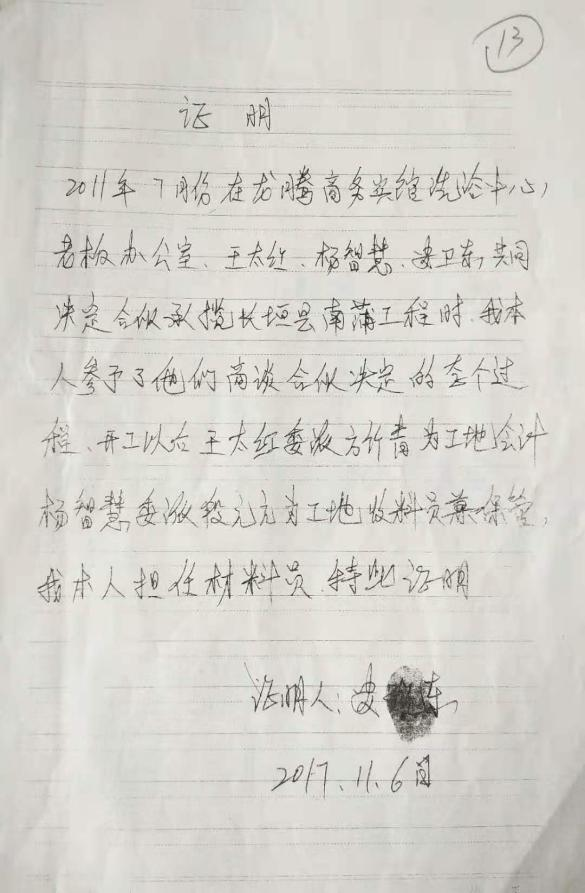 13
证 明
2011年7月份在龙腾商务宾馆洗浴中心,
老板办公室、王太红、杨智慧、安卫东,共同
决定合伙承揽长垣县南蒲工程时,我本
人参予了他们商谈合伙决定的全过
程、开工以后王太红委派方竹青为工地会计
杨智慧委派段元元为工地收料员兼保管,
我本人担任材料员.特此证明
证明人:安 东
2017.11.6日